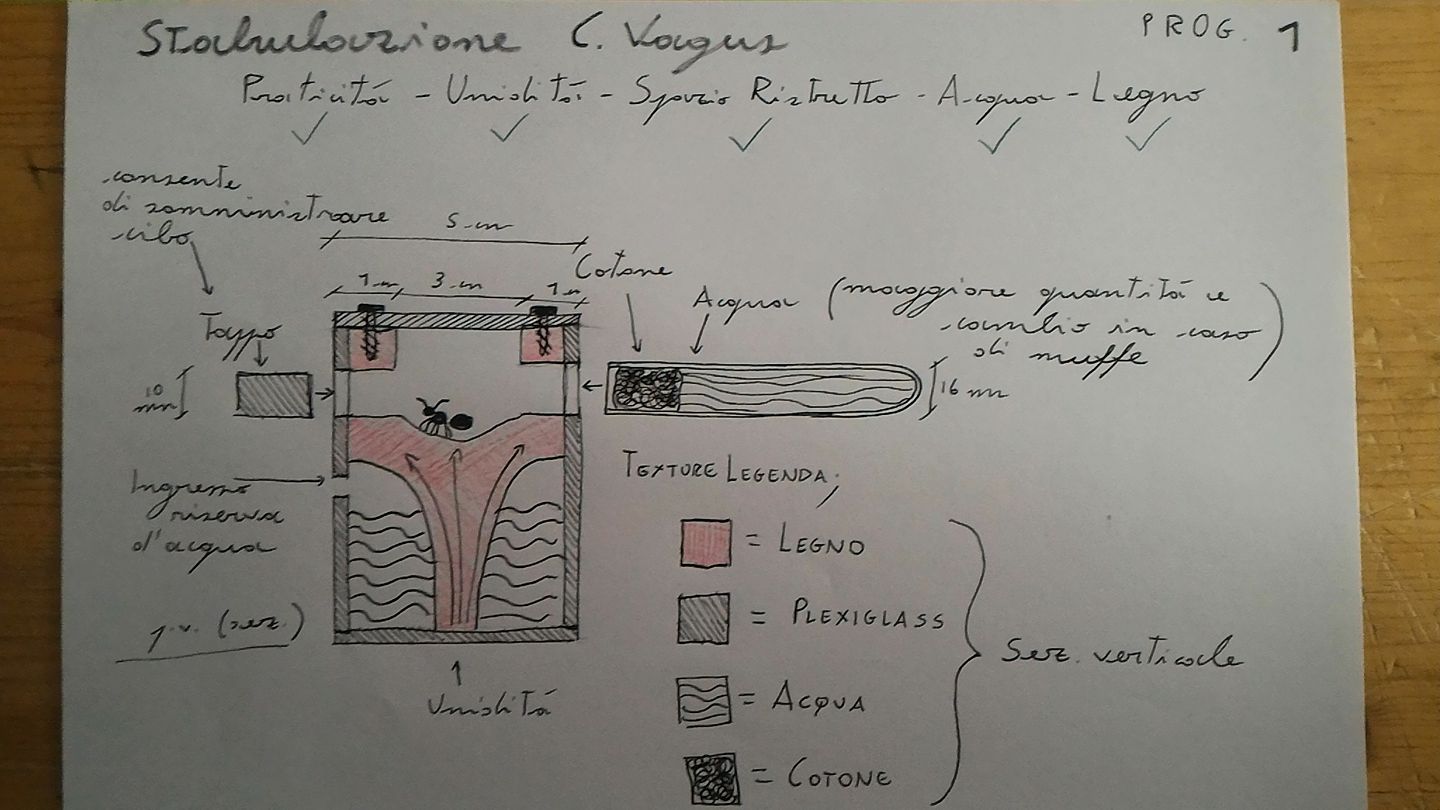 Stabulazione C. Vagus
PROG. 1
Praticitá - Umiditá - Spazio Ristretto - Acqua - Legno
consente
di somministrare
cibo
5 cm
1 cm
3 cm
1 cm
Cotone
Acqua
(maggiore quantitá e
cambio in caso
di muffe)
Tappo
10
mm
16 mm
Ingresso
riserva
d'acqua
TEXTURE LEGENDA;
= LEGNO
= PLEXIGLASS
= ACQUA
= COTONE
Sez. verticale
p.v. (sez.)
Umiditá